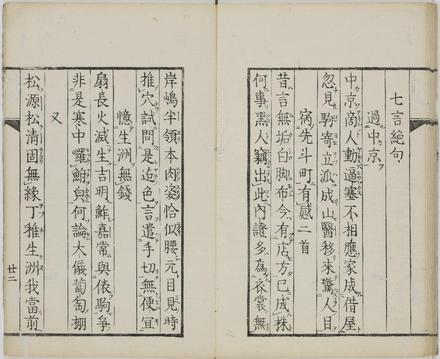 七言絶句
過中京
中京商人動逼塞不相應家成借屋
忽見駒寄立派成山醫移來驚人目
宿先斗町有感二首
昔言無垢白脚布今有店方已成株
何事黑人竊出此內證多為衣裳無
岸嶋半領本肉婆恰似腰元目見時
推穴試問是迄色言遣手切無便宜
憶生洲無錢
扇長火滅生吉明鮓嘉常與俵駒爭
非是寒中羅鮒與何論大儀葡萄棚
又
松源松清固無緣丁推生洲我當前
廿二